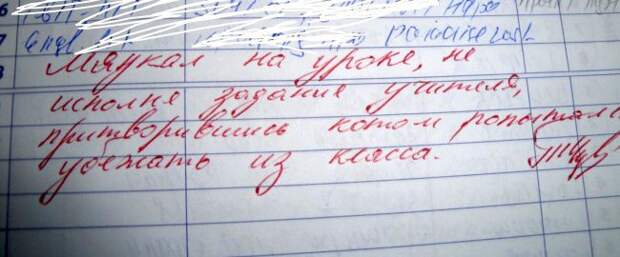 6
7 Engl
Мяукал на уроке, не
исполне задание учителя,
притворившись котом попыталс
убежать из класса.